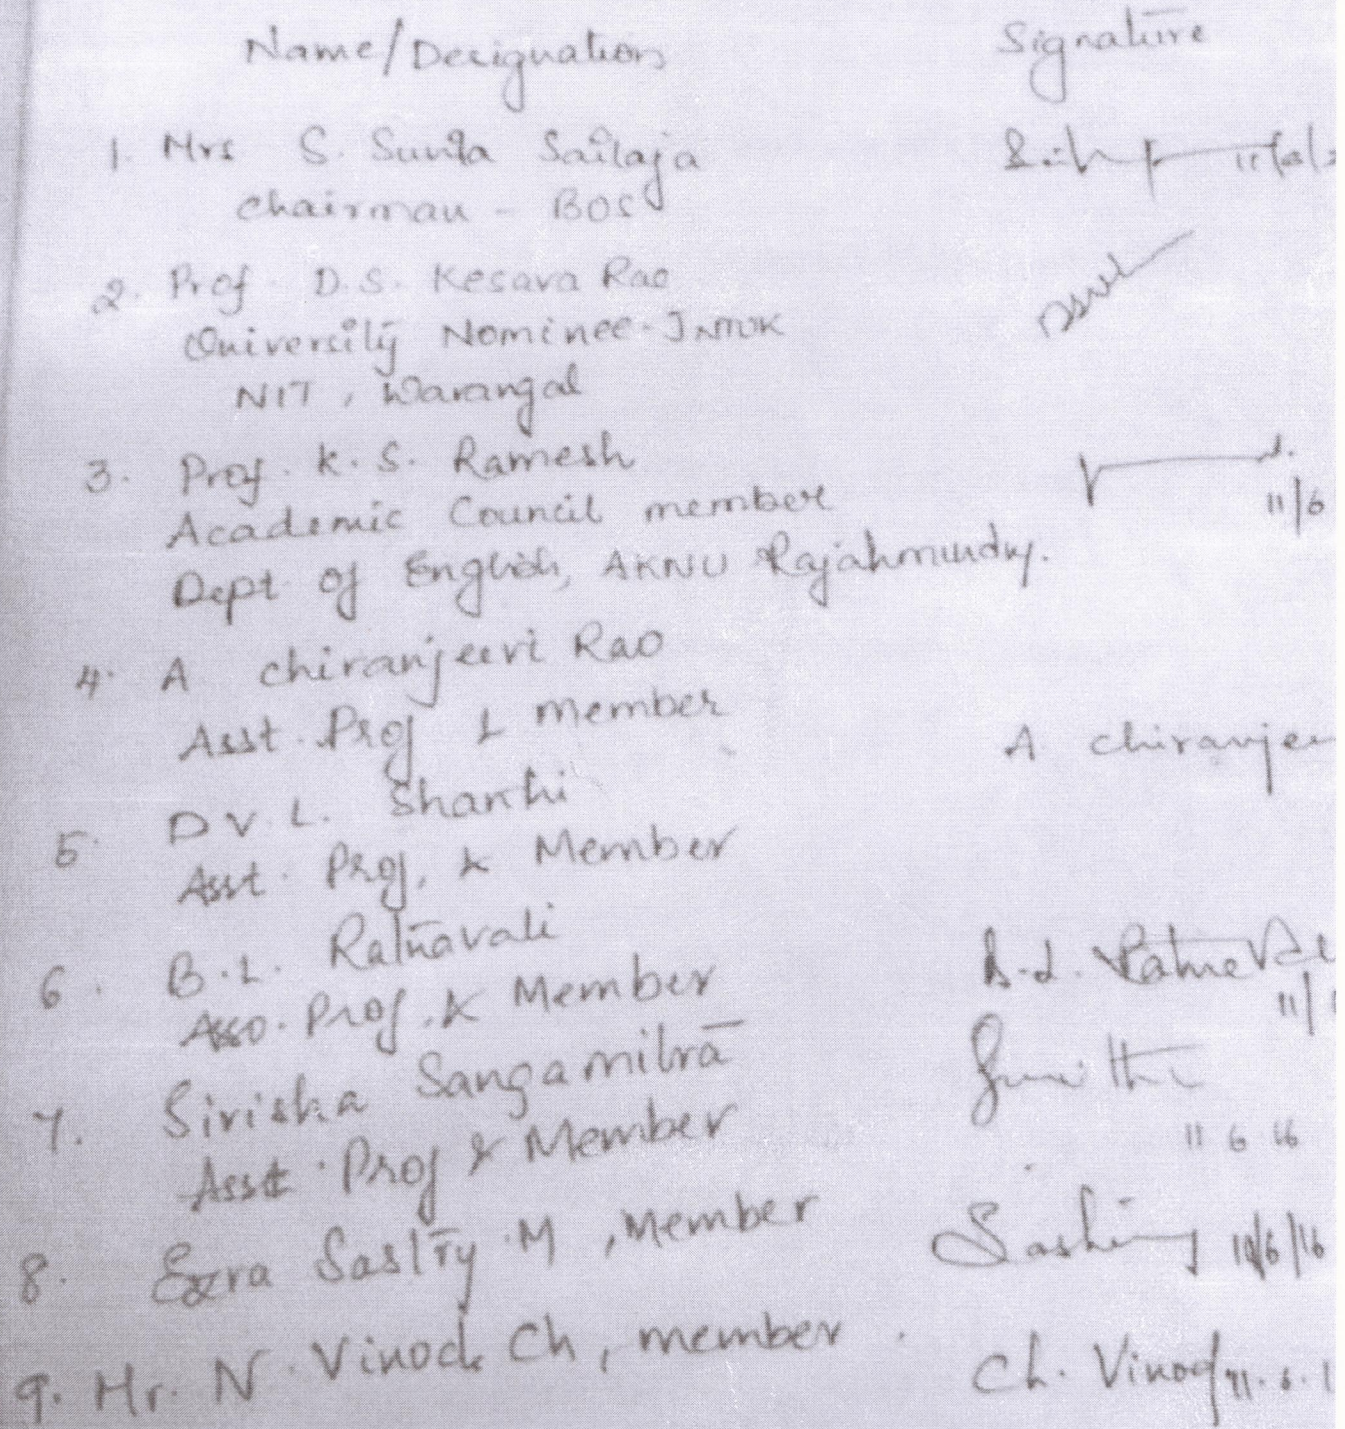 Name/Designation Signature
1. Mrs S. Sunita Sailaja
Chairman - BOS
2. Prof. D.S. Kesava Rao
University Nominee-JNTUK
NIT, Warangal
3. Prof. K. S. Ramesh
11/6
Academic Council member
Dept of English, AKNU Rajahmundry.
4. A chiranjeevi Rao
Asst. Prof & member A chiranjee
5. D V. L. Shanthi
Asst. Prof, & Member
6. B.L. Ratnavali B.L.
Asso. Prof. & Member 11/
7. Sirisha Sangamitra
Asst. Prof & Member 11 6 16
8. Ezra Sastry M, Member 11/6/16
9. Mr. N. Vinod Ch, member. Ch. Vinod 11.6.1